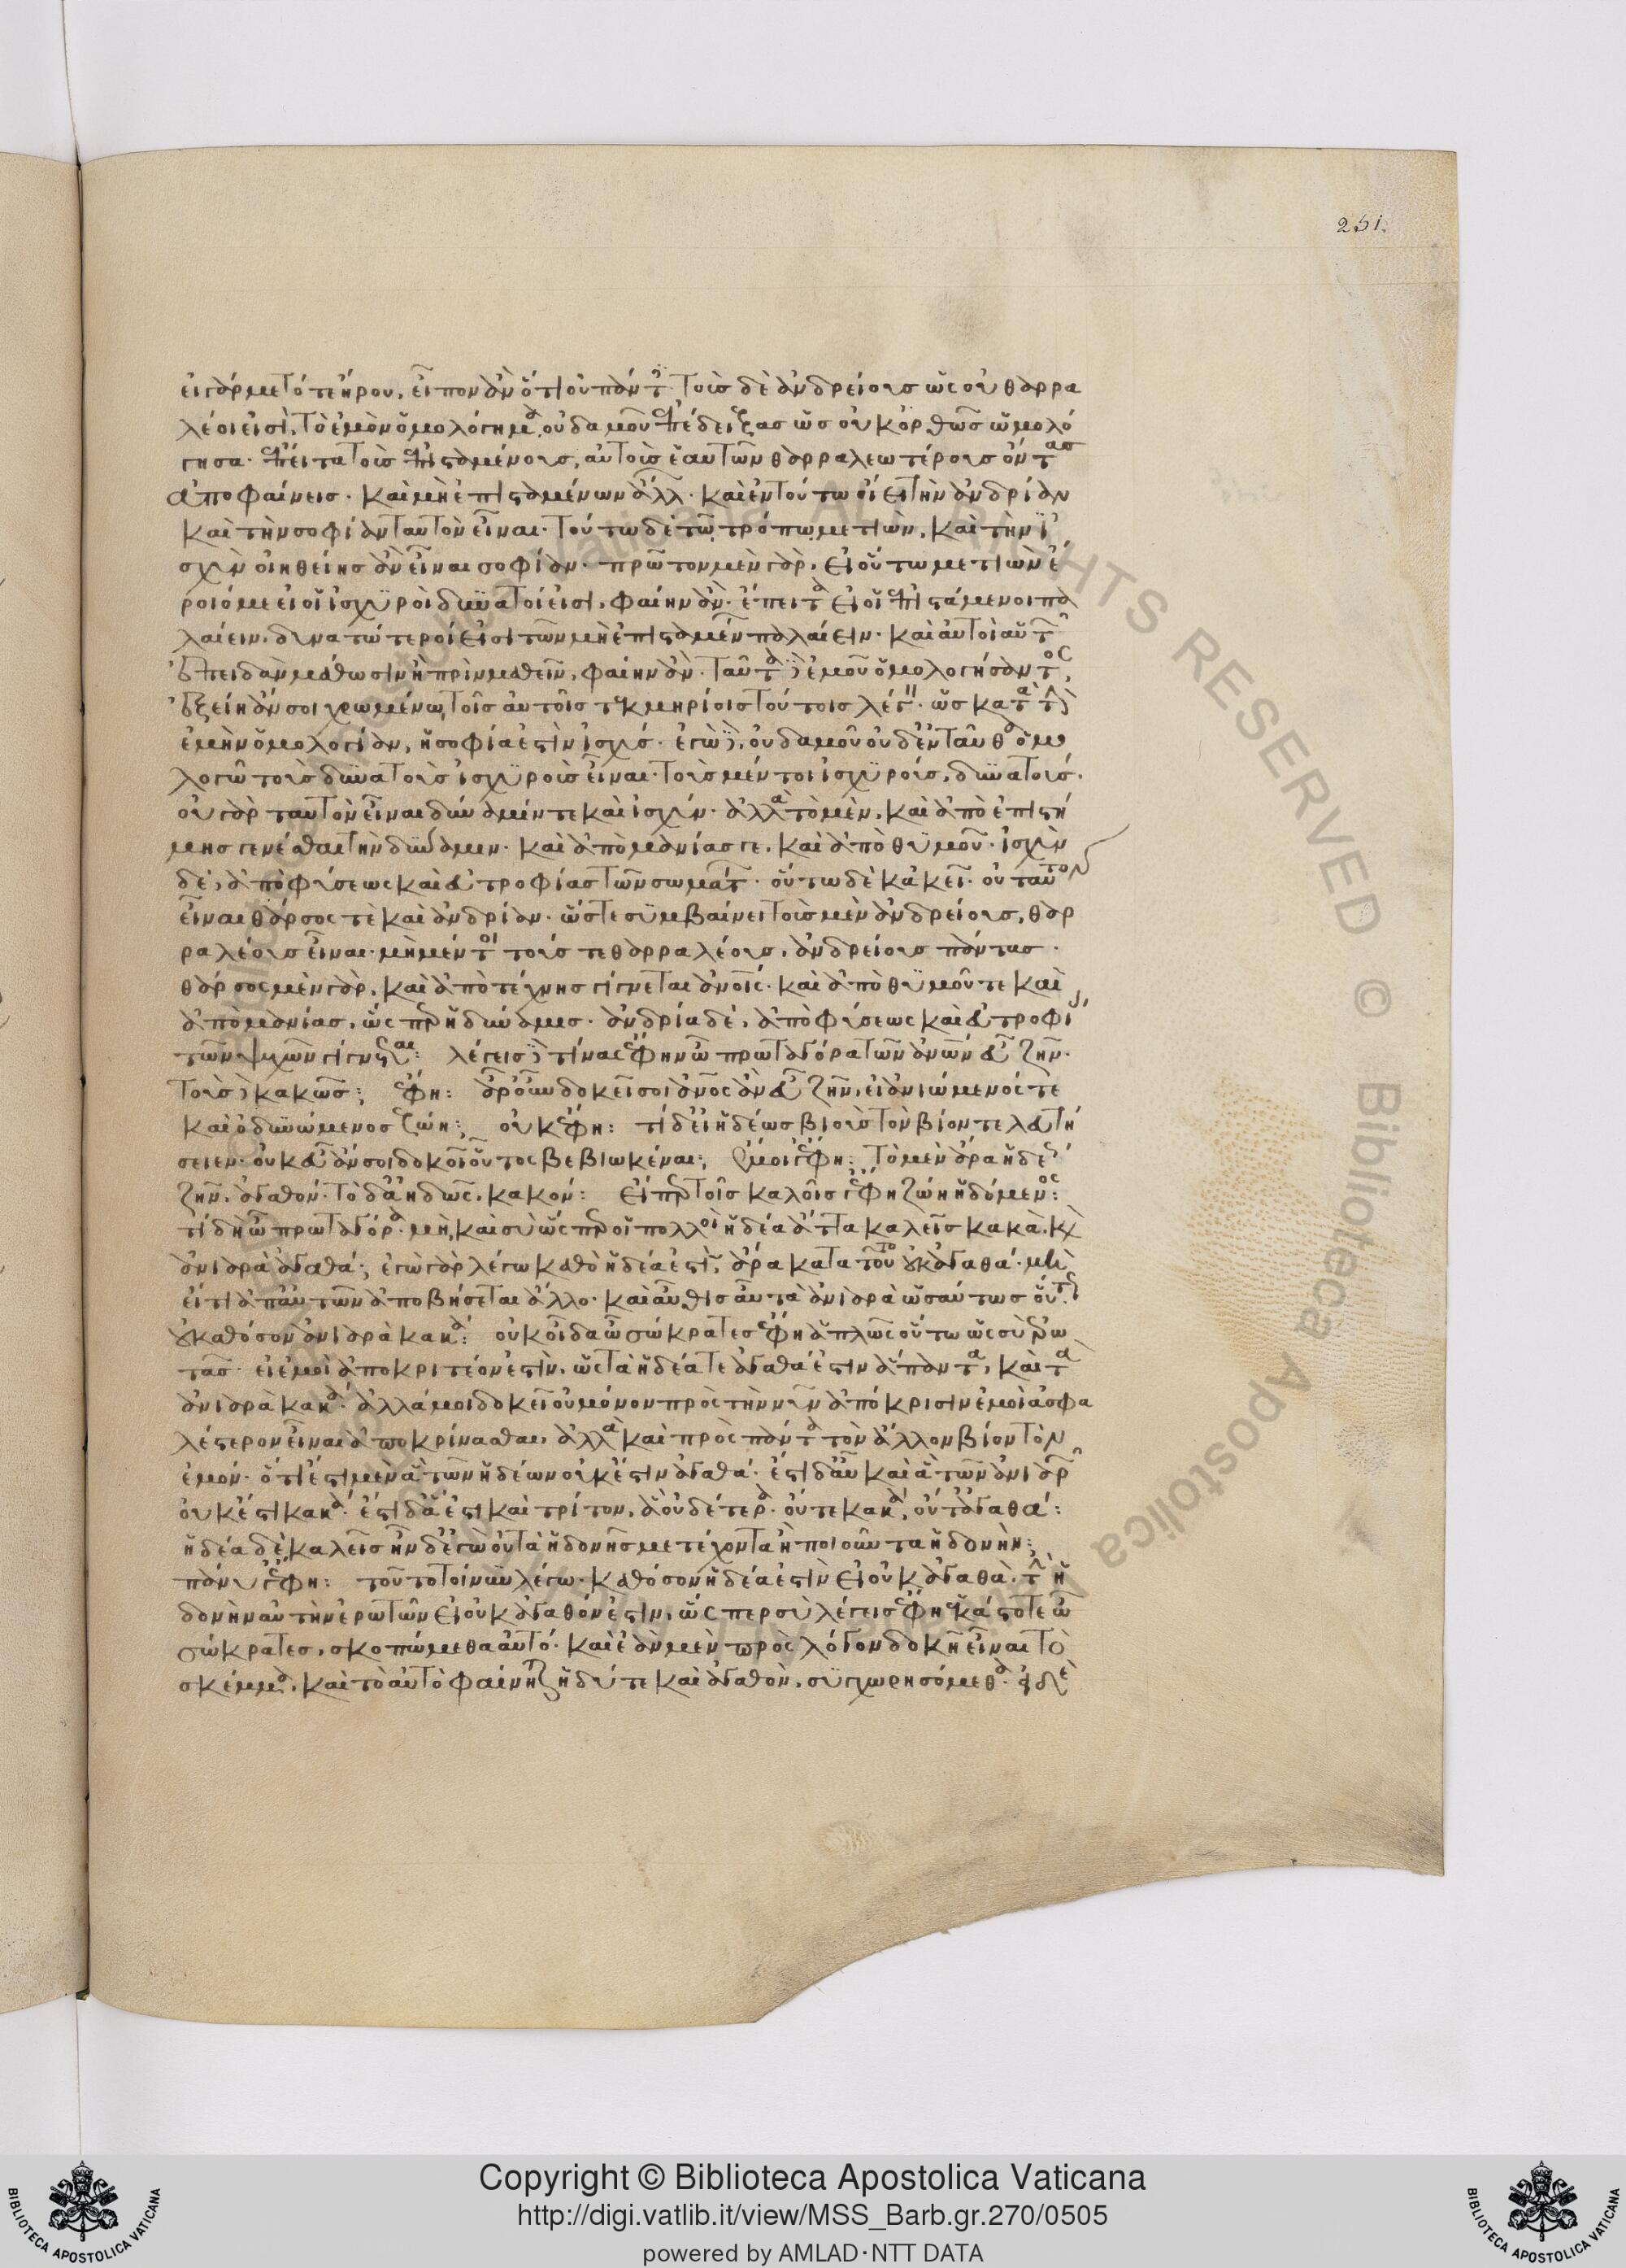 251.
εἰ γὰρ με τότε ἤρου, εἶπον ἂν ὅτι οὐ πάντες· τοὺς δὲ ἀνδρείους ὡς οὐ θαρρα
λέοι εἰσὶ, τὸ ἐμὸν ὁμολόγημα, οὐδαμοῦ ἐπέδειξας ὡς οὐκ ὀρθῶς ὡμολό
γησα· ἔπειτα τοὺς ἐπισταμένους, αὐτοὺς ἑαυτῶν θαρραλεωτέρους ὄντας
ἀποφαίνεις· καὶ μὴ ἐπισταμένων ἄλλων· καὶ ἐν τούτω οἴει τὴν ἀνδρίαν
καὶ τὴν σοφίαν ταυτὸν εἶναι· τούτω δὲ τῶ τρόπω μετιὼν, καὶ τὴν ἰ
σχὺν οἰηθείης ἂν εἶναι σοφίαν· πρῶτον μὲν γὰρ, εἰ οὕτω μετιὼν ἔ
ροιό με εἰ οἱ ἰσχυροὶ δυνατοί εἰσι, φαίην ἄν· ἔπειτα εἰ οἱ ἐπιστάμενοι πα
λαίειν, δυνατώτεροί εἰσι τῶν μὴ ἐπισταμένων παλαίειν· καὶ αὐτοὶ αὑτῶν
ἐπειδὰν μάθωσιν ἢ πρὶν μαθεῖν, φαίην ἄν· ταῦτα δὲ ἐμοῦ ὁμολογήσαντος,
ἐξείη ἄν σοι χρωμένω τοῖς αὐτοῖς τεκμηρίοις τούτοις λέγειν· ὡς κατὰ τὴν
ἐμὴν ὁμολογίαν, ἡ σοφία ἐστὶν ἰσχύς· ἐγὼ δὲ, οὐδαμοῦ οὐδ' ἐνταῦθα ὁμο
λογῶ τοὺς δυνατοὺς ἰσχυροὺς εἶναι· τοὺς μέντοι ἰσχυροὺς, δυνατούς·
οὐ γὰρ ταυτὸν εἶναι δύναμίν τε καὶ ἰσχύν· ἀλλὰ τὸ μὲν, καὶ ἀπὸ ἐπιστή
μης γενέσθαι τὴν δύναμιν· καὶ ἀπὸ μανίας γε, καὶ ἀπὸ θυμοῦ· ἰσχὺν
δὲ, ἀπὸ φύσεως καὶ εὐτροφίας τῶν σωμάτων· οὕτω δὲ κἀκεῖ· οὐ ταυτὸν
εἶναι θάρσος τὲ καὶ ἀνδρίαν· ὥστε συμβαίνει τοὺς μὲν ἀνδρείους, θαρ
ραλέους εἶναι· μὴ μέντοι τούς τε θαρραλέους, ἀνδρείους πάντας·
θάρσος μὲν γὰρ, καὶ ἀπὸ τέχνης γίγνεται ἀνοις· καὶ ἀπὸ θυμοῦ τε καὶ
ἀπὸ μανίας, ὥσπερ ἡ δύναμις· ἀνδρία δὲ, ἀπὸ φύσεως καὶ εὐτροφίας
τῶν ψυχῶν γίγνεται: λέγεις δὲ τινας ἔφην ὦ πρωταγόρα τῶν ἀνων εὖ ζῆν·
τοὺς δὲ κακῶς; ἔφη: ἆρ' οὖν δοκεῖ σοι ἀνος ἂν εὖ ζῆν, εἰ ἀνιώμενός τε
καὶ ὀδυνώμενος ζώη; οὐκ ἔφη: τί δ' εἰ ἡδέως βιοὺς τὸν βίον τελευτή
σειεν· οὐκ εὖ ἄν σοι δοκοῖ οὕτος βεβιωκέναι; ἔμοιγ' ἔφη: τὸ μὲν ἄρα ἡδέως
ζῆν, ἀγαθόν· τὸ δ' ἀηδῶς, κακόν: εἴπερ τοῖς καλοῖς γ' ἔφη ζώη ἡδόμενος:
τί δὴ ὦ πρωταγόρα· μὴ καὶ σὺ ὥσπερ οἱ πολλοὶ ἡδέα ἄττα καλεῖς κακὰ, καὶ
ἀνιαρὰ ἀγαθά; ἐγὼ γὰρ λέγω καθὸ ἡδέα ἐστὶν, ἆρα κατὰ τοῦτο οὐκ ἀγαθά· μὴ
εἴ τι ἀπ' αὐτῶν ἀποβήσεται ἄλλο· καὶ αὖθις αὖ τὰ ἀνιαρὰ ὡσαύτως οὕτως
οὐ καθόσον ἀνιαρὰ κακά: οὐκ οἶδα ὦ σώκρατες ἔφη ἁπλῶς οὕτω ὡς σὺ ἐρω
τᾶς· εἰ ἐμοὶ ἀποκριτέον ἐστὶν, ὡς τὰ ἡδέα τε ἀγαθά ἐστιν ἅπαντα, καὶ τὰ
ἀνιαρὰ κακά· ἀλλά μοι δοκεῖ οὐ μόνον πρὸς τὴν νῦν ἀπόκρισιν ἐμοὶ ἀσφα
λέστερον εἶναι ἀποκρίνασθαι, ἀλλὰ καὶ πρὸς πάντα τὸν ἄλλον βίον τὸν
ἐμόν· ὅτι ἔστι μὲν ἃ τῶν ἡδέων οὐκ ἔστιν ἀγαθά· ἔστι δ' αὖ καὶ ἃ τῶν ἀνιαρῶν
οὐκ ἔστι κακά· ἔστι δ' ἃ ἔστι καὶ τρίτον, ἃ οὐδέτερα· οὔτε κακὰ, οὔτ' ἀγαθά:
ἡδέα δὲ καλεῖς ἦν δ' ἐγὼ οὐ τὰ ἡδονῆς μετέχοντα ἢ ποιοῦντα ἡδονήν;
πάνυ γ' ἔφη: τοῦτο τοίνυν λέγω· καθόσον ἡδέα ἐστὶν εἰ οὐκ ἀγαθὰ, τὴν ἡ
δονὴν αὐτὴν ἐρωτῶν εἰ οὐκ ἀγαθόν ἐστιν, ὥσπερ σὺ λέγεις ἔφη ἑκάστοτε ὦ
σώκρατες, σκοπώμεθα αὐτό· καὶ ἐὰν μὲν πρὸς λόγον δοκῆ εἶναι τὸ
σκέμμα, καὶ τὸ αὐτὸ φαίνηται ἡδύ τε καὶ ἀγαθὸν, συγχωρησόμεθα· εἰ δὲ
Copyright © Biblioteca Apostolica Vaticana
http://digi.vatlib.it/view/MSS_Barb.gr.270/0505
powered by AMLAD·NTT DATA